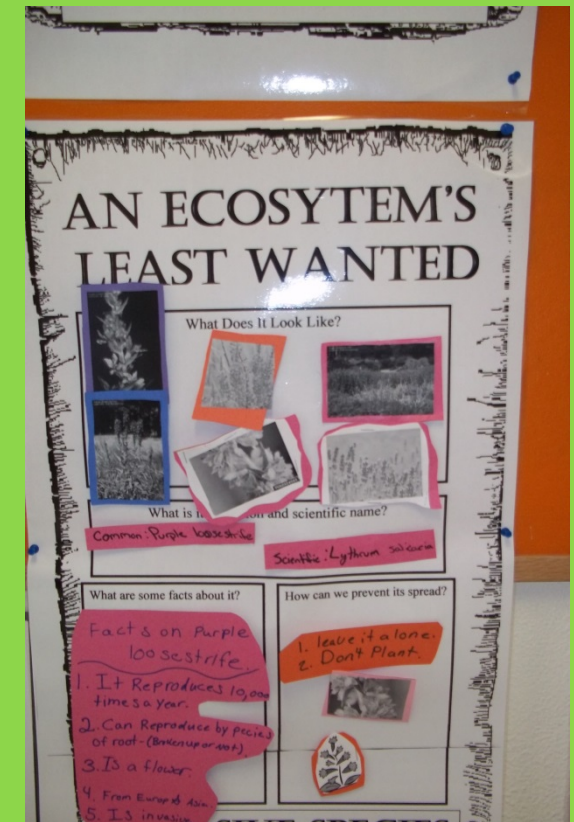 AN ECOSYTEM'S
LEAST WANTED
What Does It Look Like?
What is and scientific name?
Common: Purple loosestrife
Scientific: Lythrum salicaria
What are some facts about it?
Facts on Purple
loosestrife.
1. It Reproduces 10,000
times a year.
2. Can Reproduce by pecies
of root-(Broken up or not)
3. Is a flower.
4. From Europe & Asia.
5. Is invasive
How can we prevent its spread?
1. leave it alone.
2. Don't Plant.
SPECIES